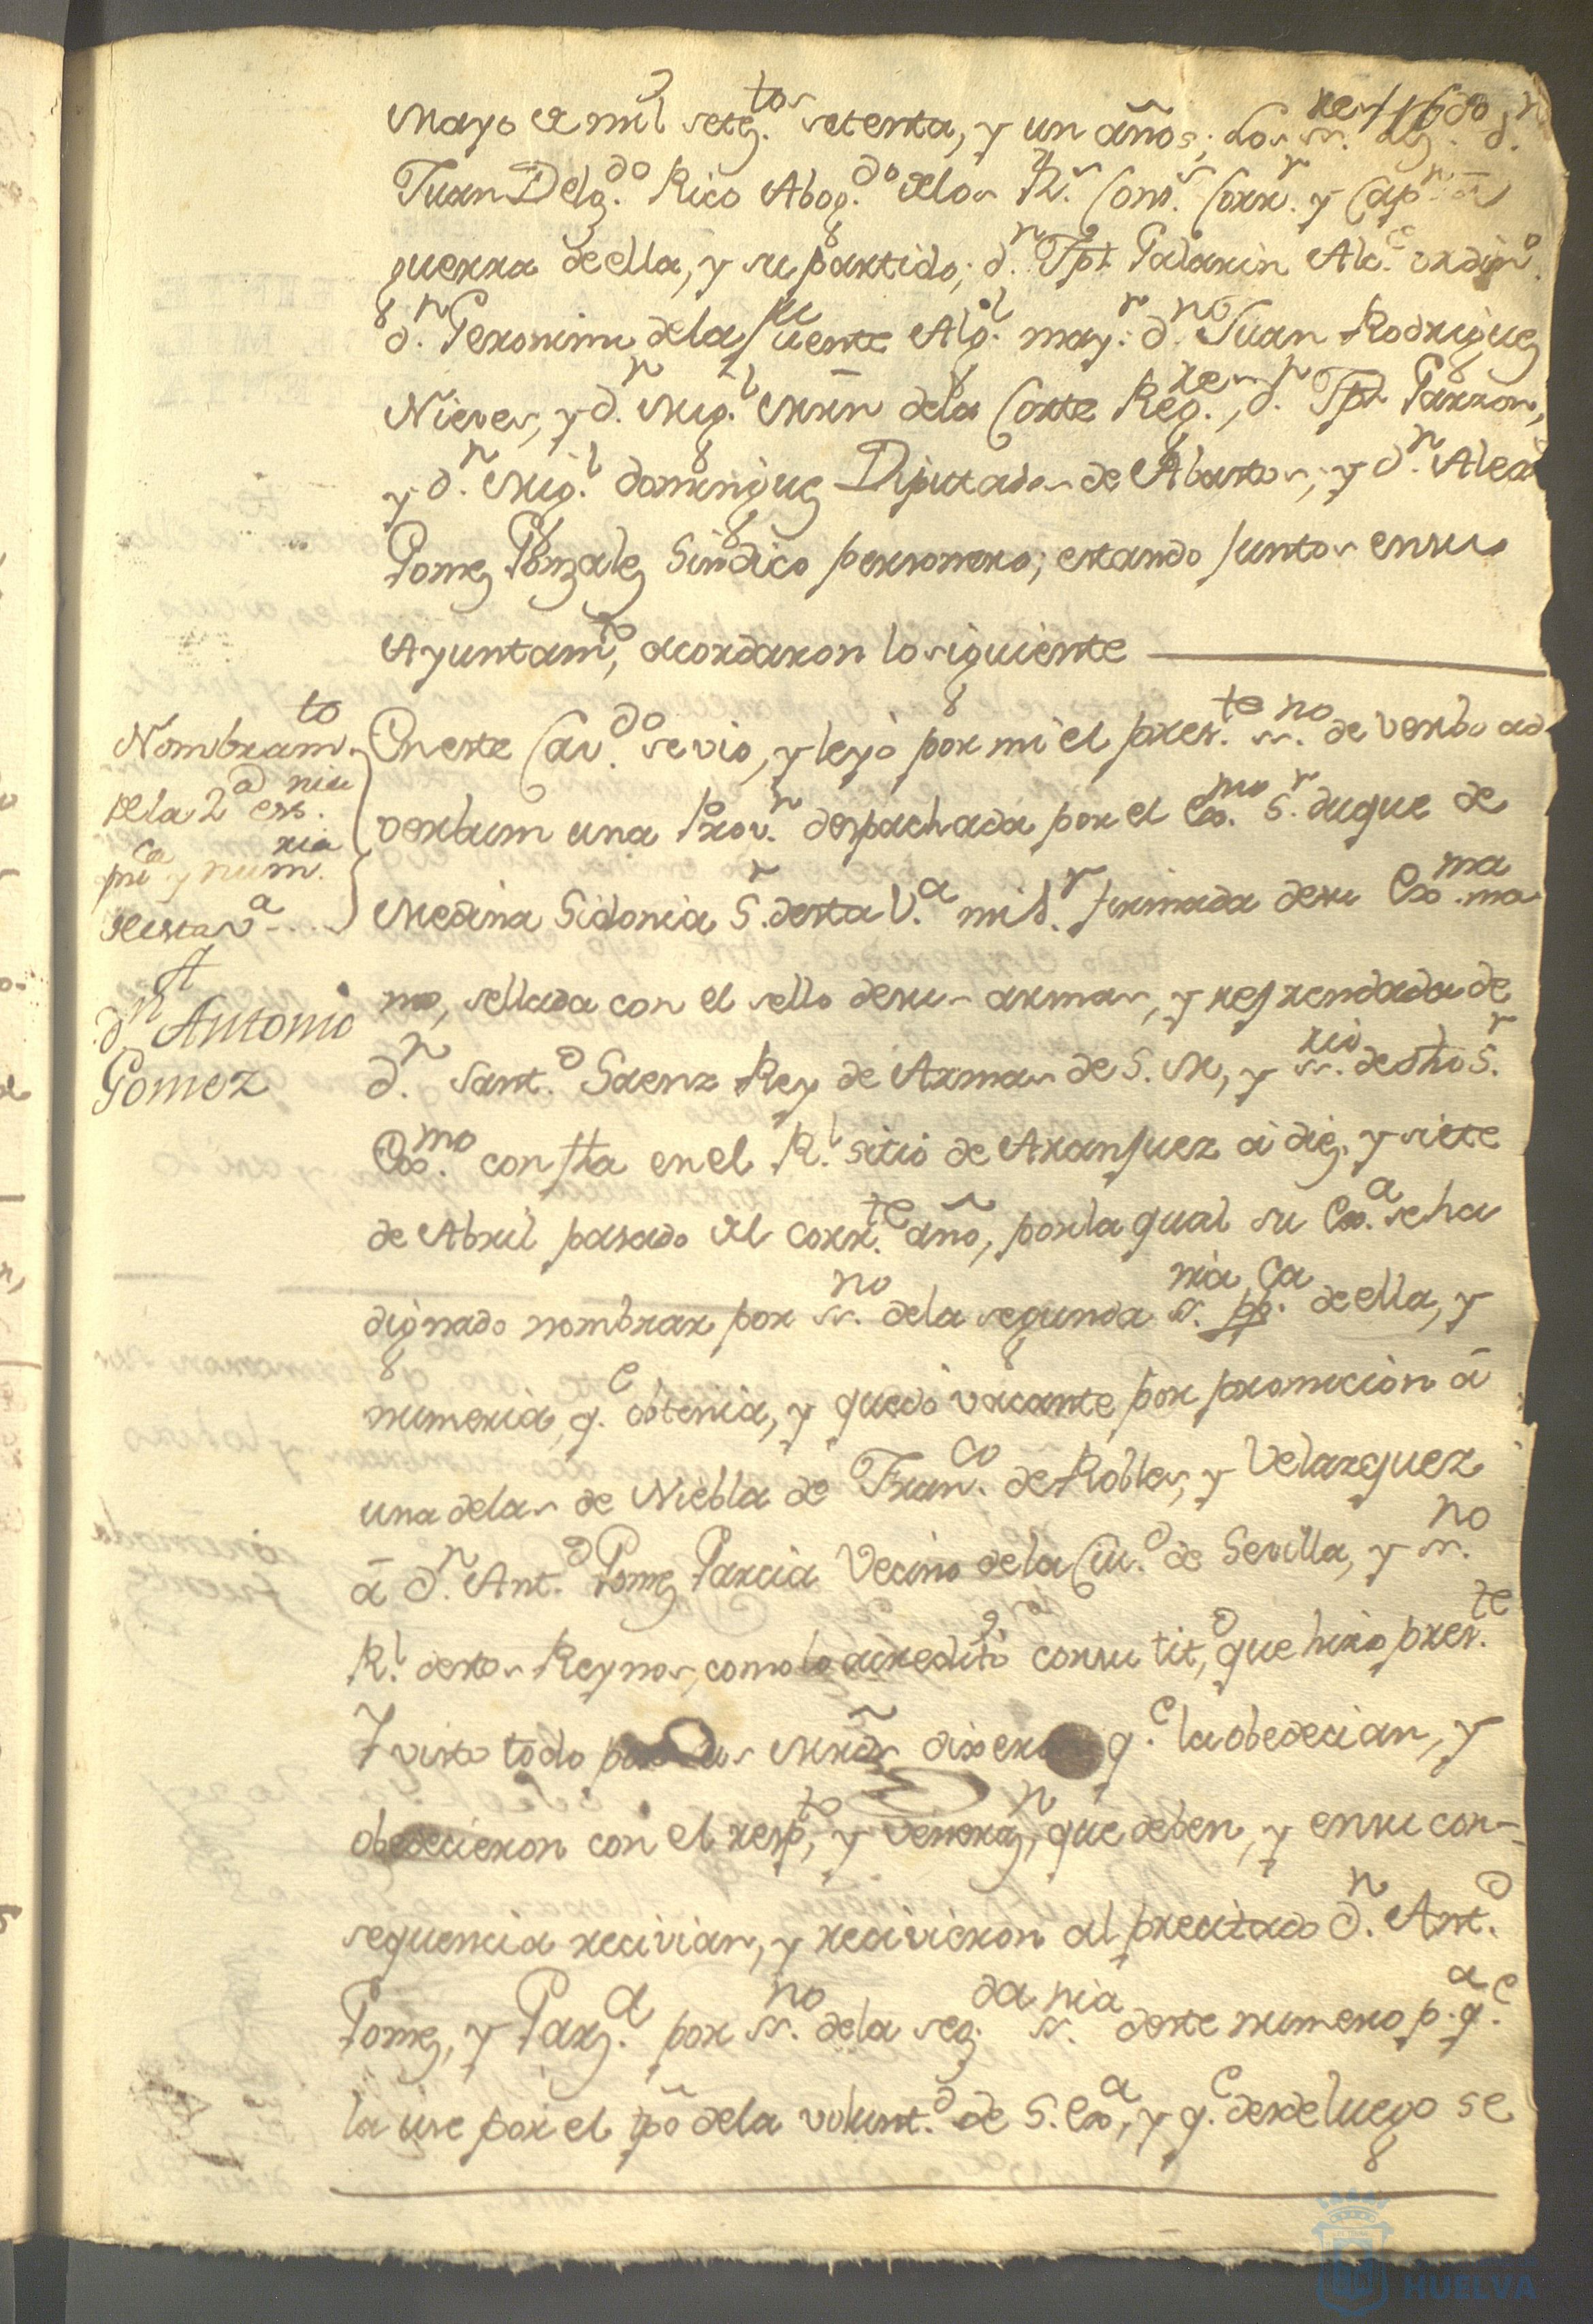 Mayo de mil seteg.tos setenta, y un años; Los ss.res Lz.do d.n
Juan Delg.do Rico Abog.do delos R.s Cons.s Corr.r y Cap.n a
guerra de ella, y su partido; d.n Tph. Palarin Alc.e ordin.o
d.n Geronimo dela fuente Alg.l may.r d.n Juan Rodriguez
Nieves, y d.n Mig.l Mrn dela Corte Reg.res, d.n Tph Garzon,
y d.n Mig.l dominguez Diputados de Abastos, y d.n Alexo
Gomez Gonzalez Sindico personero; estando juntos en su
Ayuntam.to, acordaron lo siguiente
Nombram.to
dela 2.a ess.nia
pu.ca y num.ria
desta v.a
A
d.n Antonio
Gomez
En este Cav.do se vio, y leyó por mi el pres.te ss.no de verbo ad
verbum una Prov.n despachada por el Exs.mo S.r duque de
Medina Sidonia S.r desta V.a mi S.r firmada de su Exs.ma ma
no, sellada con el sello de sus armas, y refrendada de
d.n Sant.o Saenz Rey de Armas de S. M, y ss.rio de dho S.r
Exs.mo con fha en el R.l sitio de Aranjuez à diez, y siete
de Abril pasado del corr.te año, por la qual su Exs.a se ha
dignado nombrar por ss.no dela segunda ss.nia pp.ca de ella, y
numeria, q.e obtenia, y quedó vacante por promocion à
una delas de Niebla de Fran.co de Robles, y Velazquez
à d.n Ant.o Gomez Garcia Vecino de la Ciu.d de Sevilla, y ss.no
R.l destos Reynos, como lo acreditó con su tit.o, que hizo pres.te
Y visto todo por sus Mrds dixeron q.e la obedecian, y
obedecieron con el resp.to, y veneraz.n, que deben, y en su con-
sequencia recivian, y recivieron al precitado d.n Ant.o
Gomez, y Garz.a por ss.no dela seg.da ss.nia deste numero p.a q.e
la use por el tpo dela volunt.d de S. Exa, y q.e desde luego se
HUELVA